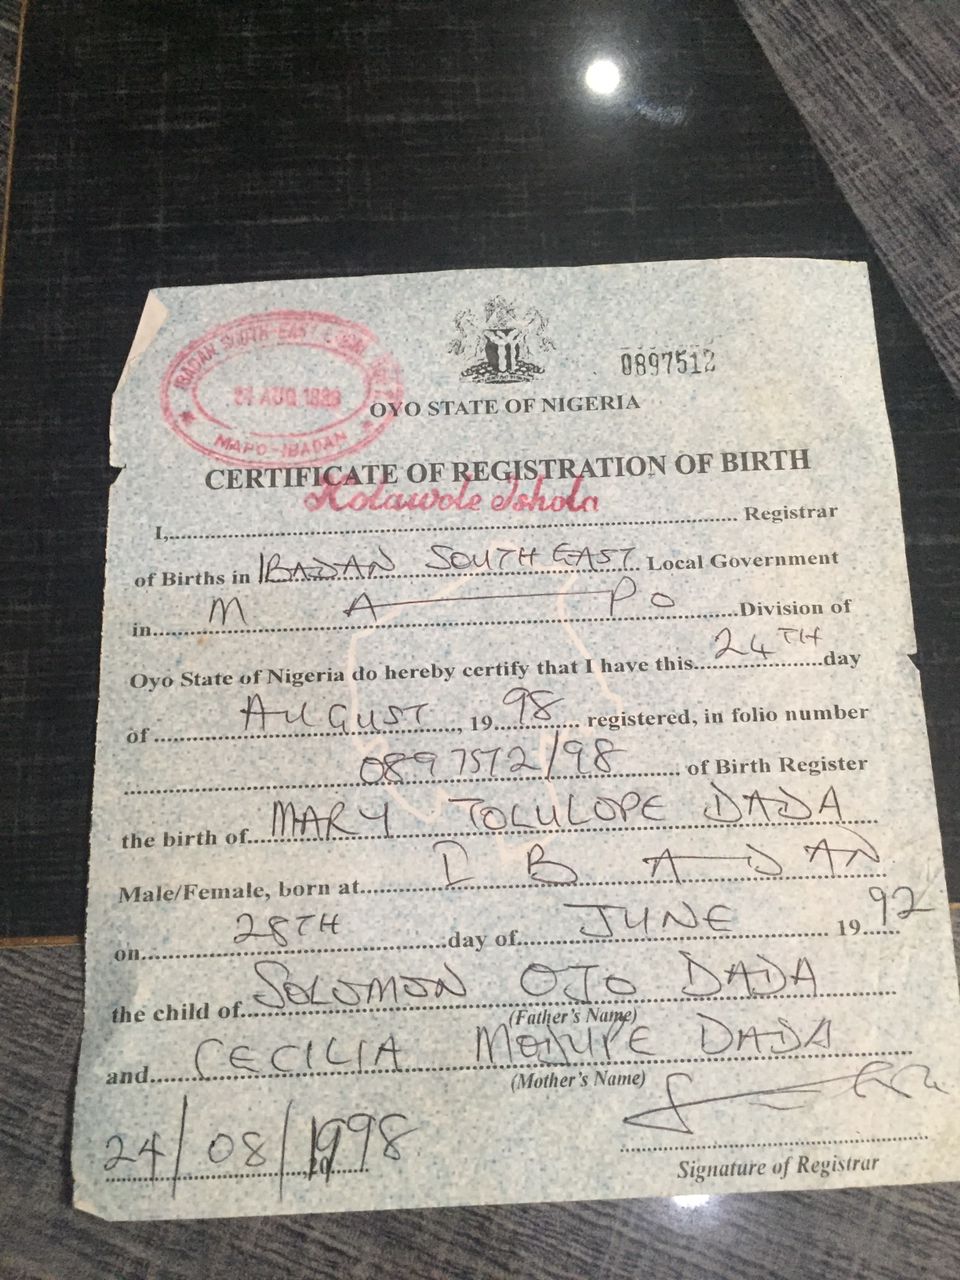 IBADAN SOUTH-EAST
24 AUG 1998
MAPO-IBADAN
0897512
OYO STATE OF NIGERIA
CERTIFICATE OF REGISTRATION OF BIRTH
Kolawole Ishola
I,.......... Registrar
of Births in IBADAN SOUTH EAST Local Government
in M A PO Division of
Oyo State of Nigeria do hereby certify that I have this 24TH day
of AUGUST, 19 98 registered, in folio number
0897512/98 of Birth Register
the birth of MARY TOLULOPE DADA
Male/Female, born at I B A D AN
on 28TH day of JUNE 19 92
the child of SOLOMON OJO DADA
(Father's Name)
and CECILIA MODUPE DADA
(Mother's Name)
24/08/1998
Signature of Registrar